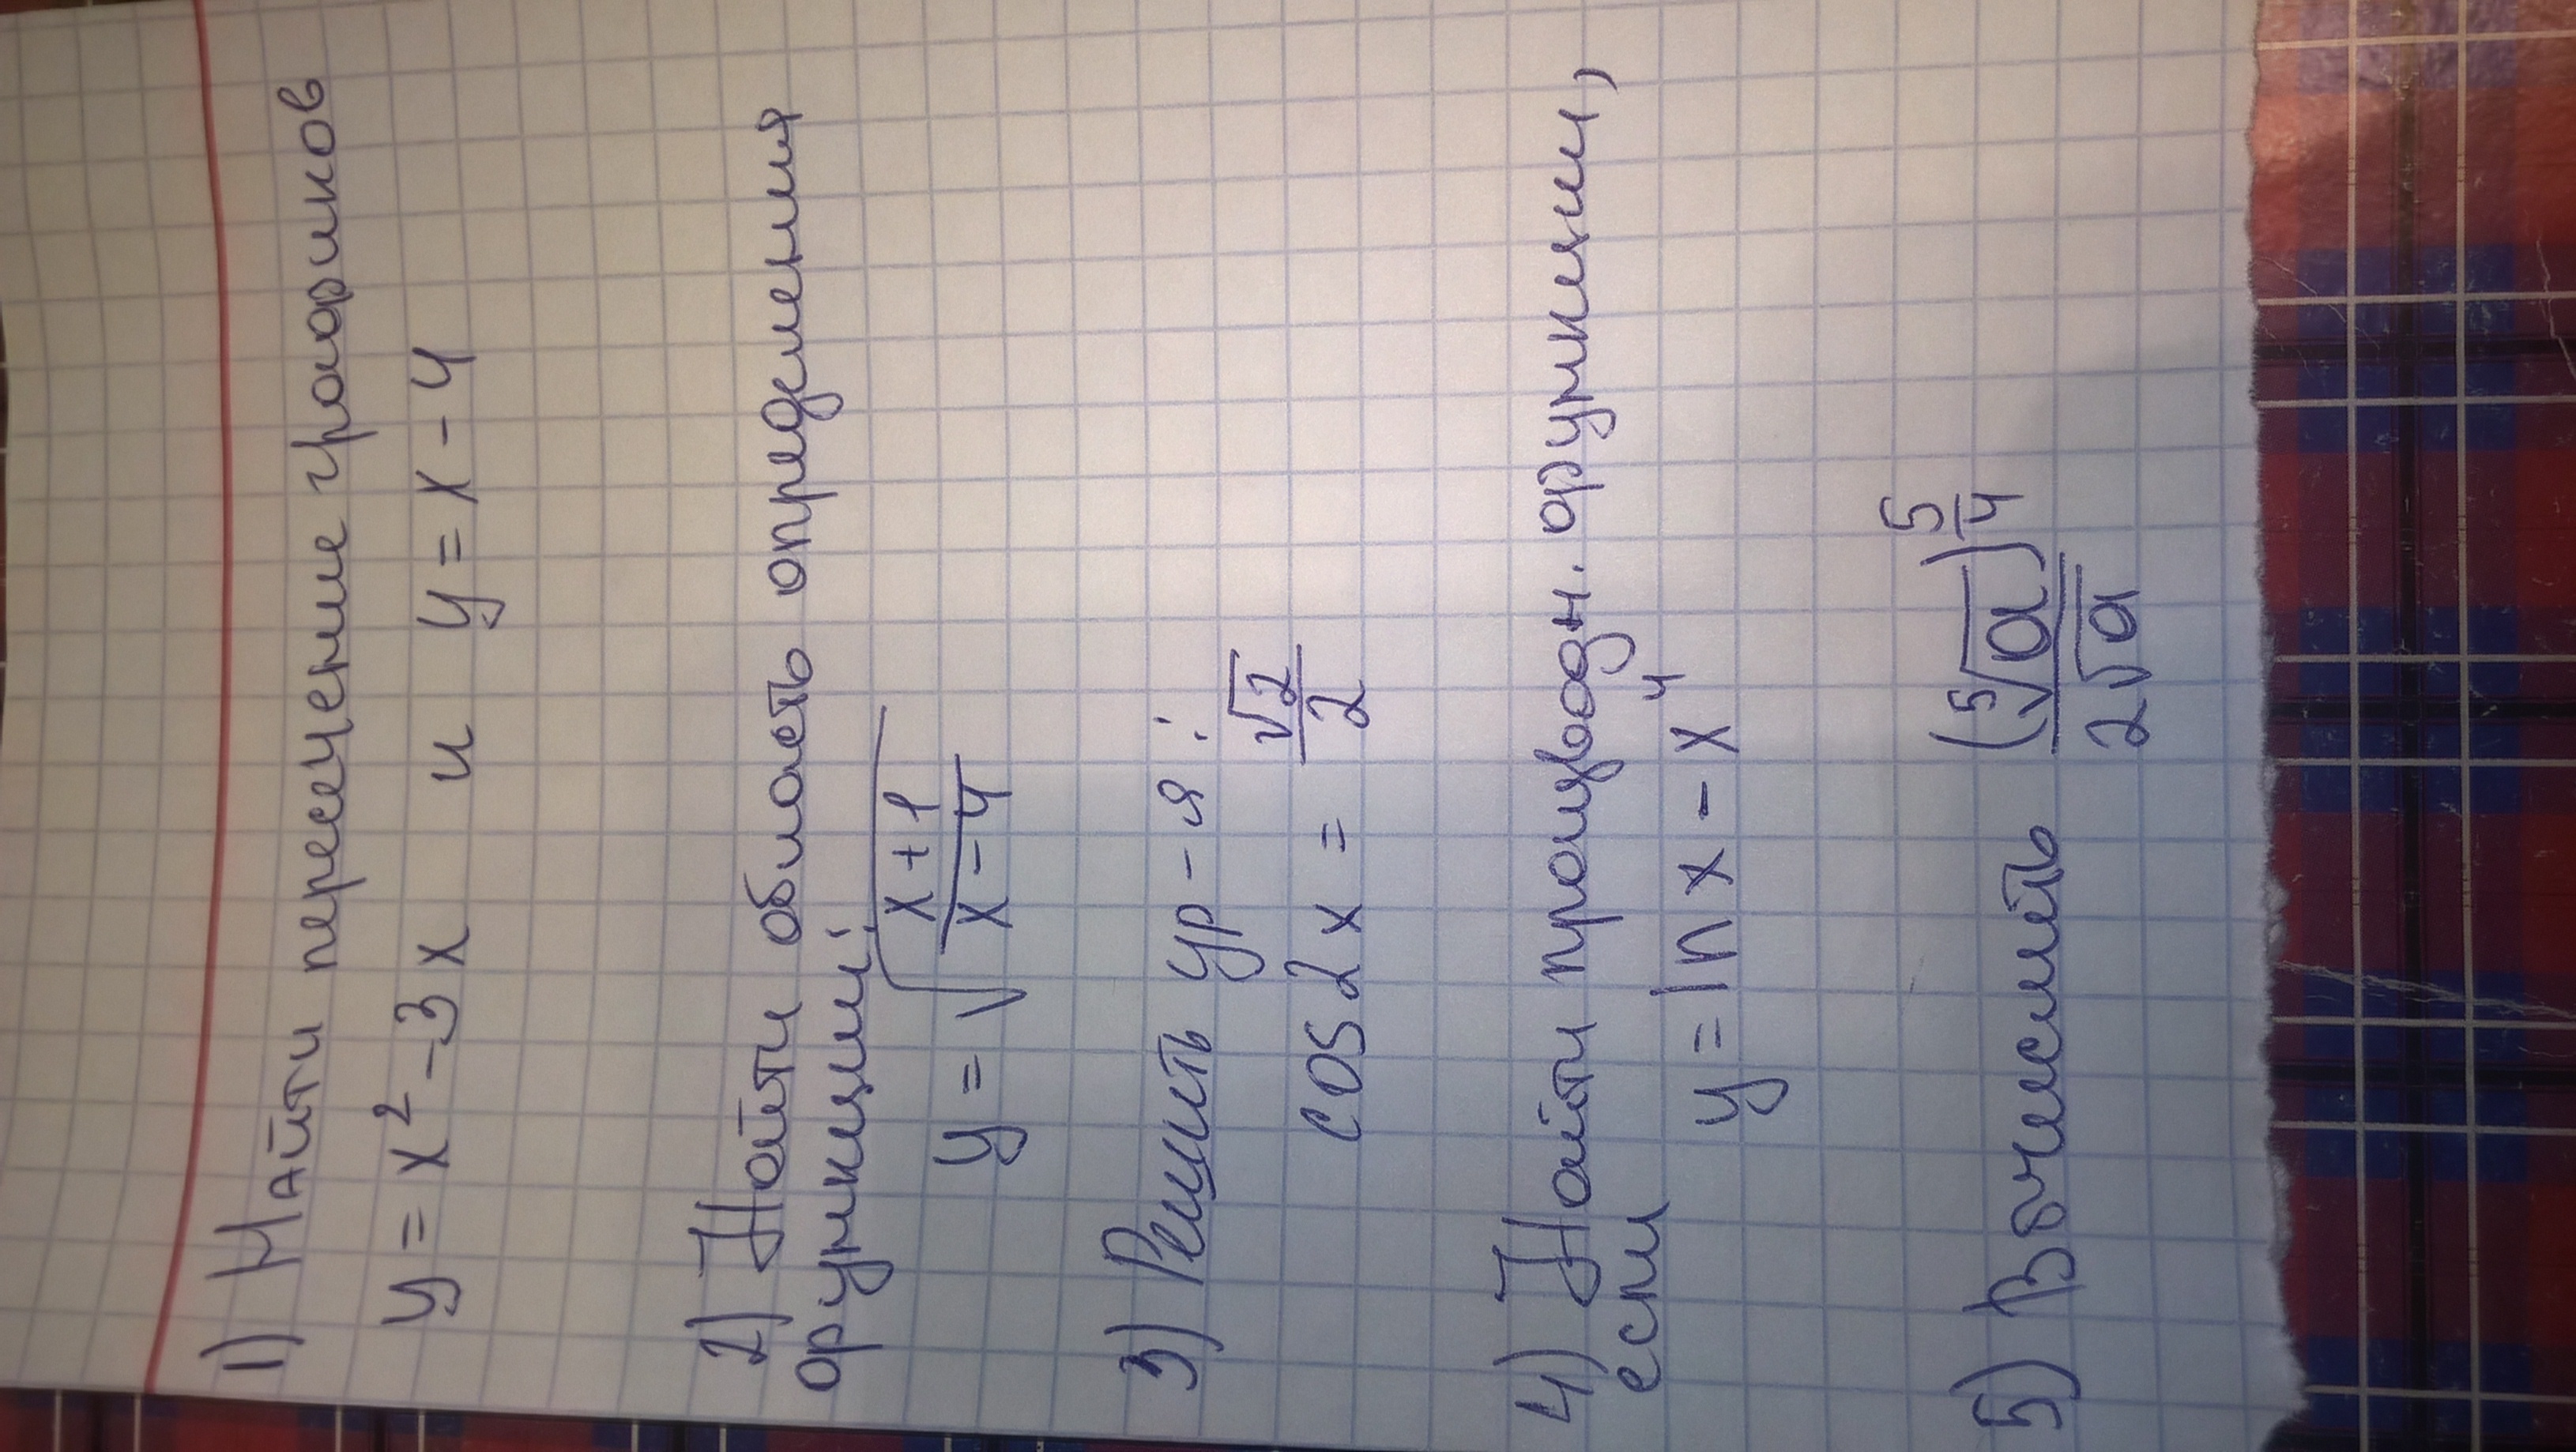 1) Найти пересечение графиков
y = x² - 3x и y = x - 4
2) Найти область определения
функции:
y = √((x+1)/(x-4))
3) Решить ур-я:
cos 2x = √2/2
4) Найти производн. функции,
если
y = ln x - x⁴
5) Вычислить (⁵√a)^(5/4) / 2√a